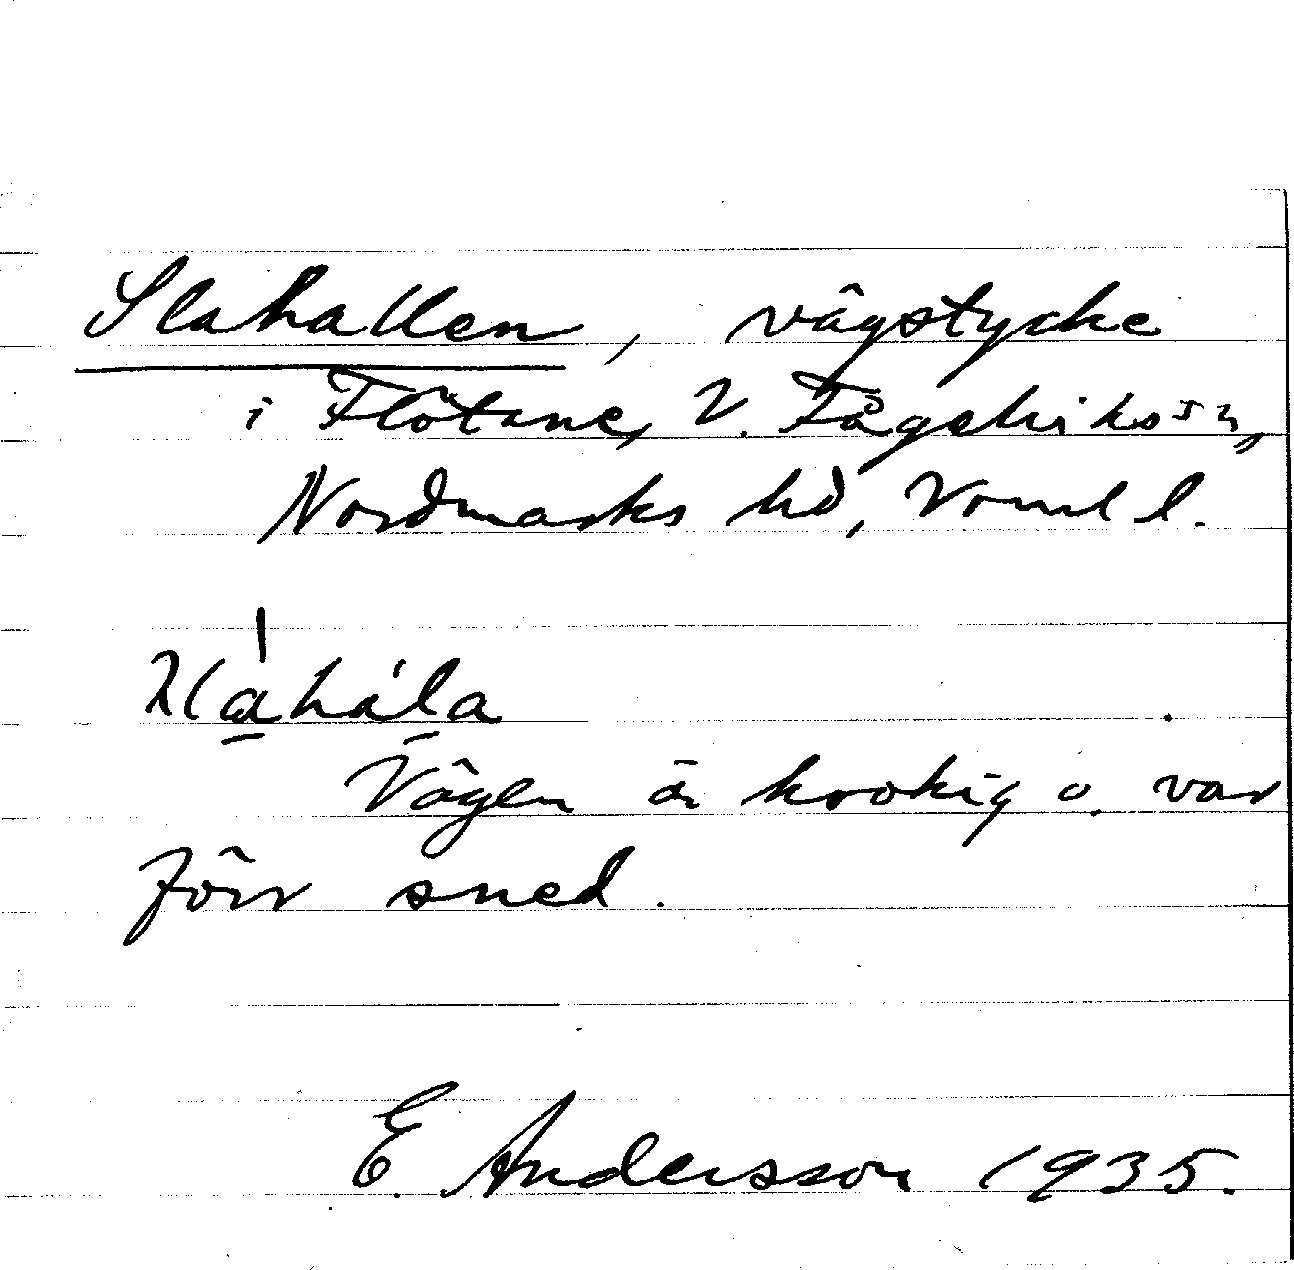 Slahallen, vägstycke
i Flötane, V. Fågelviks sn,
Nordmarks hd, Värml l.
Vägen är krokig o. var
förr sned.
E. Andersson 1935.